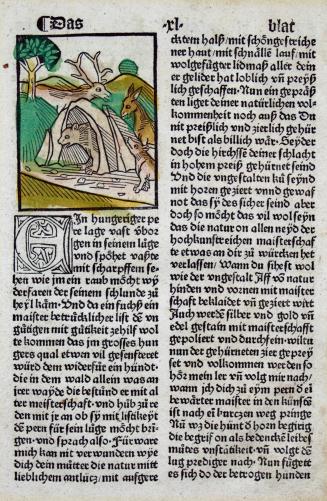 Das
.xl.
blat
EIn hungeriger pe
re lage vast verbor
gen in seinem luge
und spöhet vaste
mit scharpffem se/
hen wie jm ein raub möcht wi
derfaren der seinem schlunde zu
heyl käm. Und da ein fuchß ein
maister betrüclicher list den un
gütigen mit gütikeit ze hilf wol
te kommen das jm grosses hun
gers qual etwen vil gesenfteret
würd dem widerfür ein hündt-
die in dem wald allein was an
jrer wayde die bestünd er mit al
ler meisterschaft · und hüb zü re
den mit jr an ob sy mit listikeyt
dem peren für sein luge möcht bri/
gen · und sprach also · Fürware
mich kan nit verwundern wye
dich dein mütter die natur mitt
lieblichem antlücz / mit aufgere
cktem halß / mit schöngestriche
ner haut / mit schnällē lauf / mit
wolgefügter lidmaß aller dein
er gelider hat loblich uñ preyß
lich geschaffen · Nun ein gepräst
ten liget deiner natürlichen vol
kommenheit noch auß das Du
nit preißlich und zierlich gehür
net bist als billich wär · Seyder
doch die hirschße deiner schlacht
in hohem preiß gehürnet seind
Und die ungestalten kü seynd
mit horen geziert vnnd gewaf
not das sy des sicher seind aber
doch so möcht das vil wol seyn
das die natur on allen neyd der
hochkunstreichen maisterschaf
te etwas an dir zü würcken het
verlassen · Wann du sihest wol
wie der vngestalt Aff võ natur
hinden und vornen mit maister
schaft bekleidet vñ geziert wirt
Auch werdē silber vnd gold vñ
edel gestain mit maisterschaffte
gepoliert vnd durchfein · wiltu
nun der gehürneten zier gepreyß
set vnd volkommen werden so
hör mein ler vñ volg mir nach /
wann ich dich zu eym perē dē ei
bewärter maister in den künstē
ist nach ei kurczen weg pringe
Nū wz die hünd dʼ horen begirig
die begrif on als bedencken leibes
mütes vnstätikeit vñ volgt dē
lug prediger nach · Nun fügett
es sich do der betrogen hunden